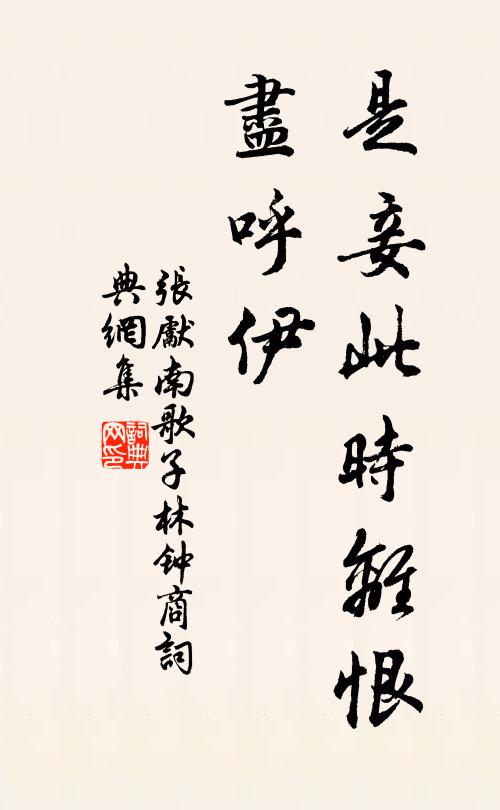 是妾此時離恨
盡呼伊
張獻南歌子林钟商詞
典網集
詞典
网印